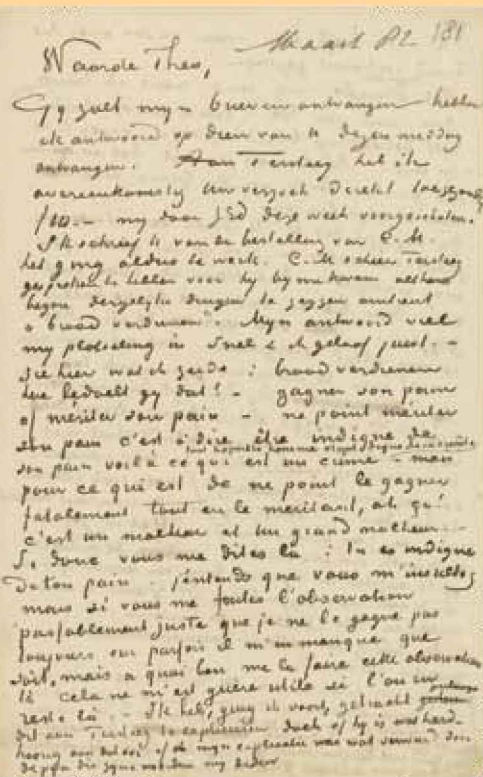 Maart 82 181
Waarde Theo,
Gy zult myn brieven ontvangen hebben
ik antwoord op dien van U dezen middag
ontvangen. Aan Tersteeg heb ik
overeenkomstig Uw verzoek direkt toegezonden
f 10.– my door ZEd deze week voorgeschoten.
Ik schreef U van de bestelling van C. M.
het ging aldus te werk. C. M. scheen Tersteeg
gesproken te hebben voor hy by my kwam althans
begon dergelyke dingen te zeggen omtrent
"brood verdienen". Myn antwoord viel
my plotseling in snel & ik geloof juist. –
Zie hier wat ik zeide : brood verdienen
hoe bedoelt gy dat? – gagner son pain
of meriter son pain – ne point meriter
son pain c'est à dire être indigne de
tout honnête homme étant digne de
son pain voilà ce qui est un crime – mais
pour ce qui est de ne point le gagner
fatalement tout en le meritant, oh ça!
c'est un malheur et un grand malheur. –
Si donc vous me dites là : tu es indigne
de ton pain j'entends que vous m'insultez
mais si vous me faites l'observation
passablement juste que je ne le gagne pas
toujours car parfois il m'en manque que
soit, mais à quoi bon me la faire cette observation
là cela ne m'est guère utile si l'on en
reste là. – Ik heb, ging ik voort, getracht
dit aan Tersteeg te expliceeren doch of hy is wat hard-
hoorig aan dat oor of myn explicatie was wat verward door
de pyn die zyne woorden my deden